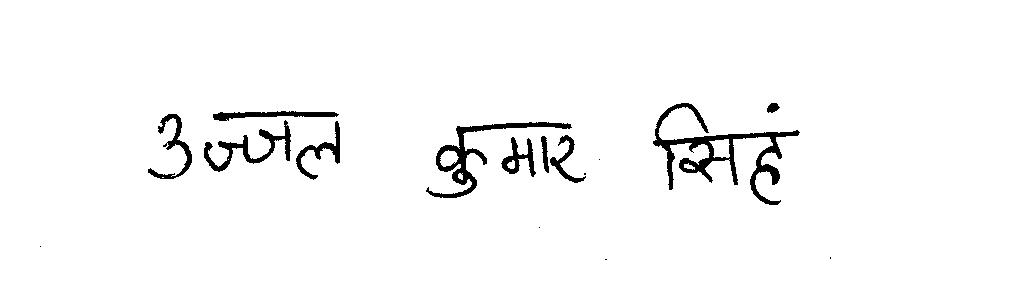 उज्जल कुमार सिहं